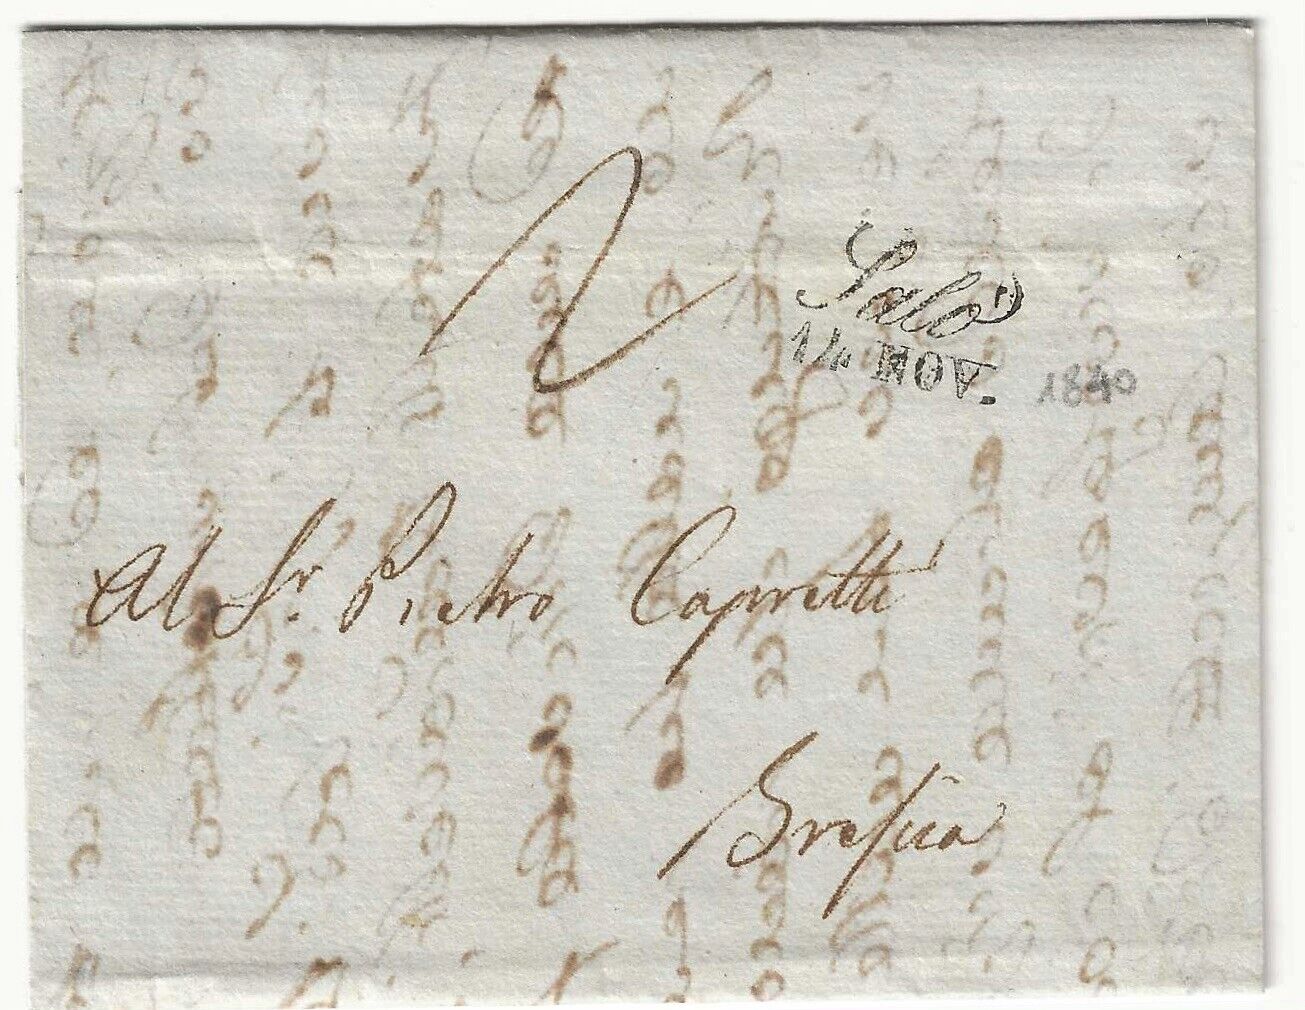 2
Salò
14 NOV.
1840
Al Sr. Pietro Capretti
Brescia